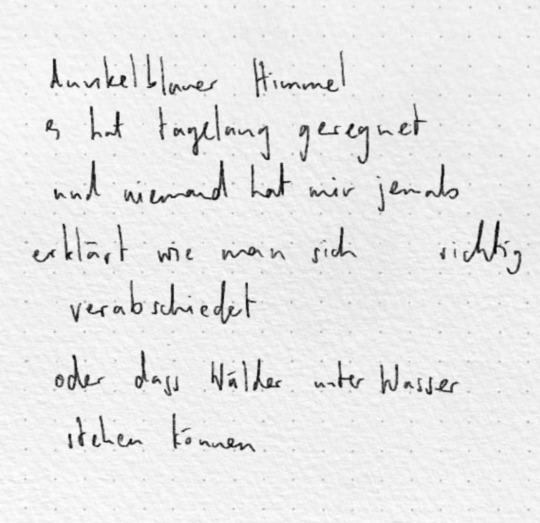 dunkelblauer Himmel
es hat tagelang geregnet
und niemand hat mir jemals
erklärt wie man sich richtig
verabschiedet
oder dass Wälder unter Wasser
stehen können